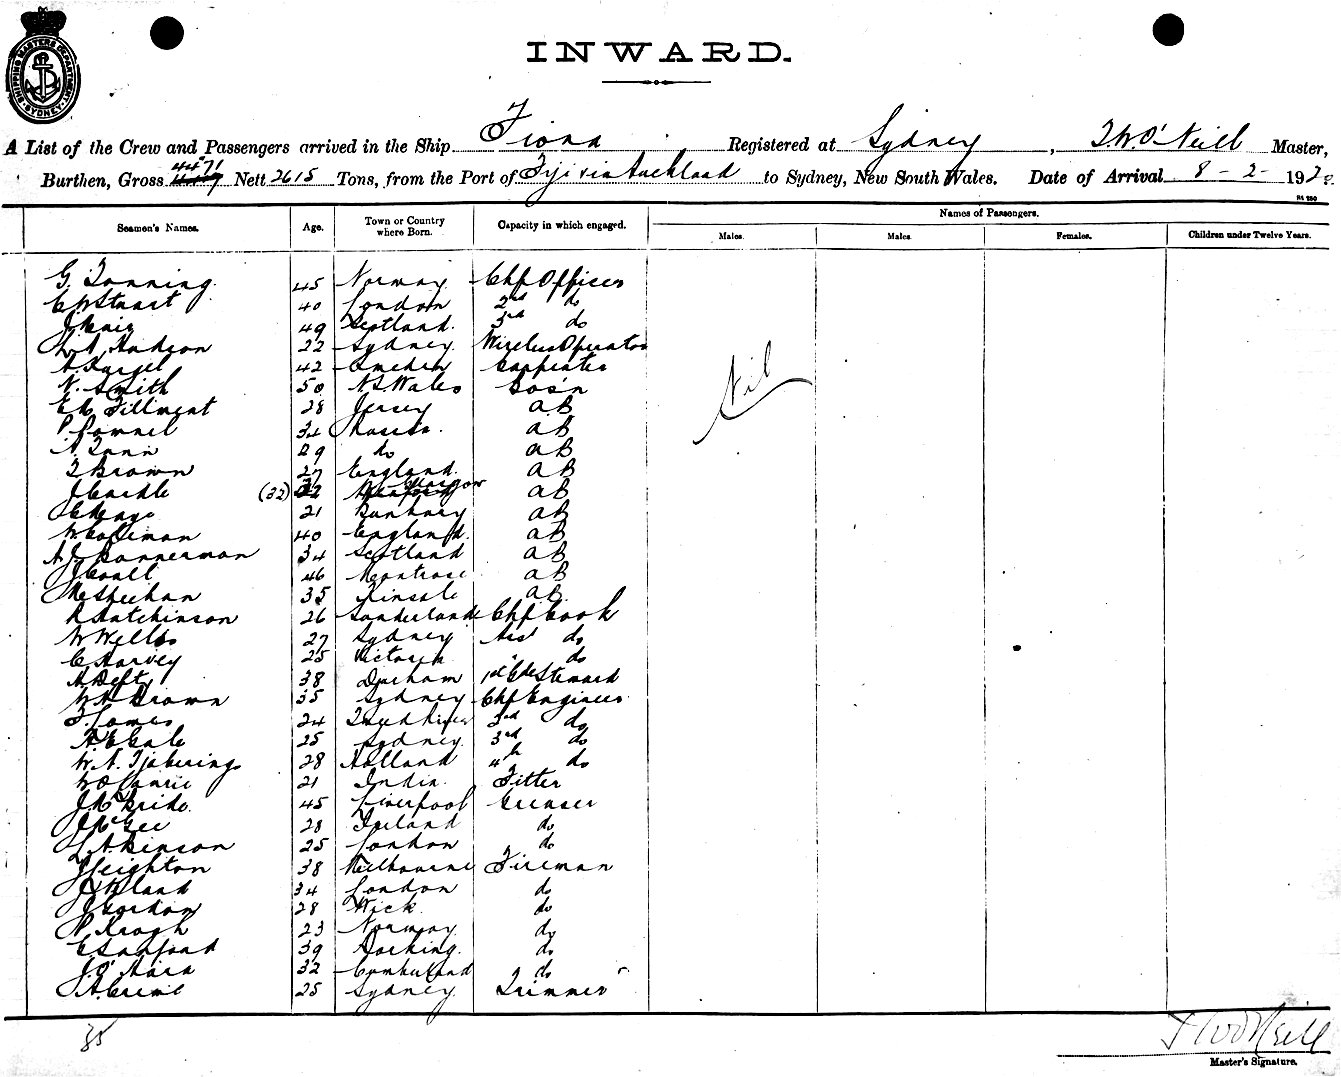 SHIPPING MASTERS DEPARTMENT SYDNEY
INWARD.
A List of the Crew and Passengers arrived in the Ship Fiona Registered at Sydney, T.W. O'Neill Master,
Burthen, Gross 4471 Nett 2615 Tons, from the Port of Fiji via Auckland to Sydney, New South Wales. Date of Arrival 8-2-1920.
Seamen's Names. Age. Town or Country where Born. Capacity in which engaged. Names of Passengers.
Males. Males. Females. Children under Twelve Years.
G. Tonning 45 Norway Chf Officer
C W Stuart 40 London 2nd do
J Craig 49 Scotland. 3rd do
Hudson 22 Sydney Wireless Operator
42 Sweden Carpenter
N. Smith 50 N.S. Wales Bos'n
Fillment 28 Jersey AB
P. 34 Russia. AB
A. Tann 29 do AB
T Brown 27 England. AB
J (32) Glasgow AB
21 Bunbury AB
W Coleman 40 England. AB
A.J. Bannerman 34 Scotland AB
J Coull 46 Montrose AB
M Sheehan 35 Kinsale AB
R Hutchinson 26 Sunderland Chf Cook
W Wells 27 Sydney Ast do
C Harvey 25 Victoria " do
A Defty 38 Durham 1st Cde Steward
W H Brown 35 Sydney Chf Engineer
T. Lomes 24 Tweed River 2nd do
A E Gale 25 Sydney 3rd do
W.A. Tjaberings 28 Holland 4th do
W O Lawrie 21 India Fitter
J McBride 45 Liverpool Greaser
J McGee 28 Ireland do
L Atkinson 25 London do
J Leighton 38 Melbourne Fireman
J Bland 34 London do
J Gordon 28 Wick do
P. Krogh 23 Norway do
C Sanford 39 Dorking do
J. O'Hara 32 Cumberland do
A. 25 Sydney Trimmer
Nil
35
T W O'Neill
Master's Signature.